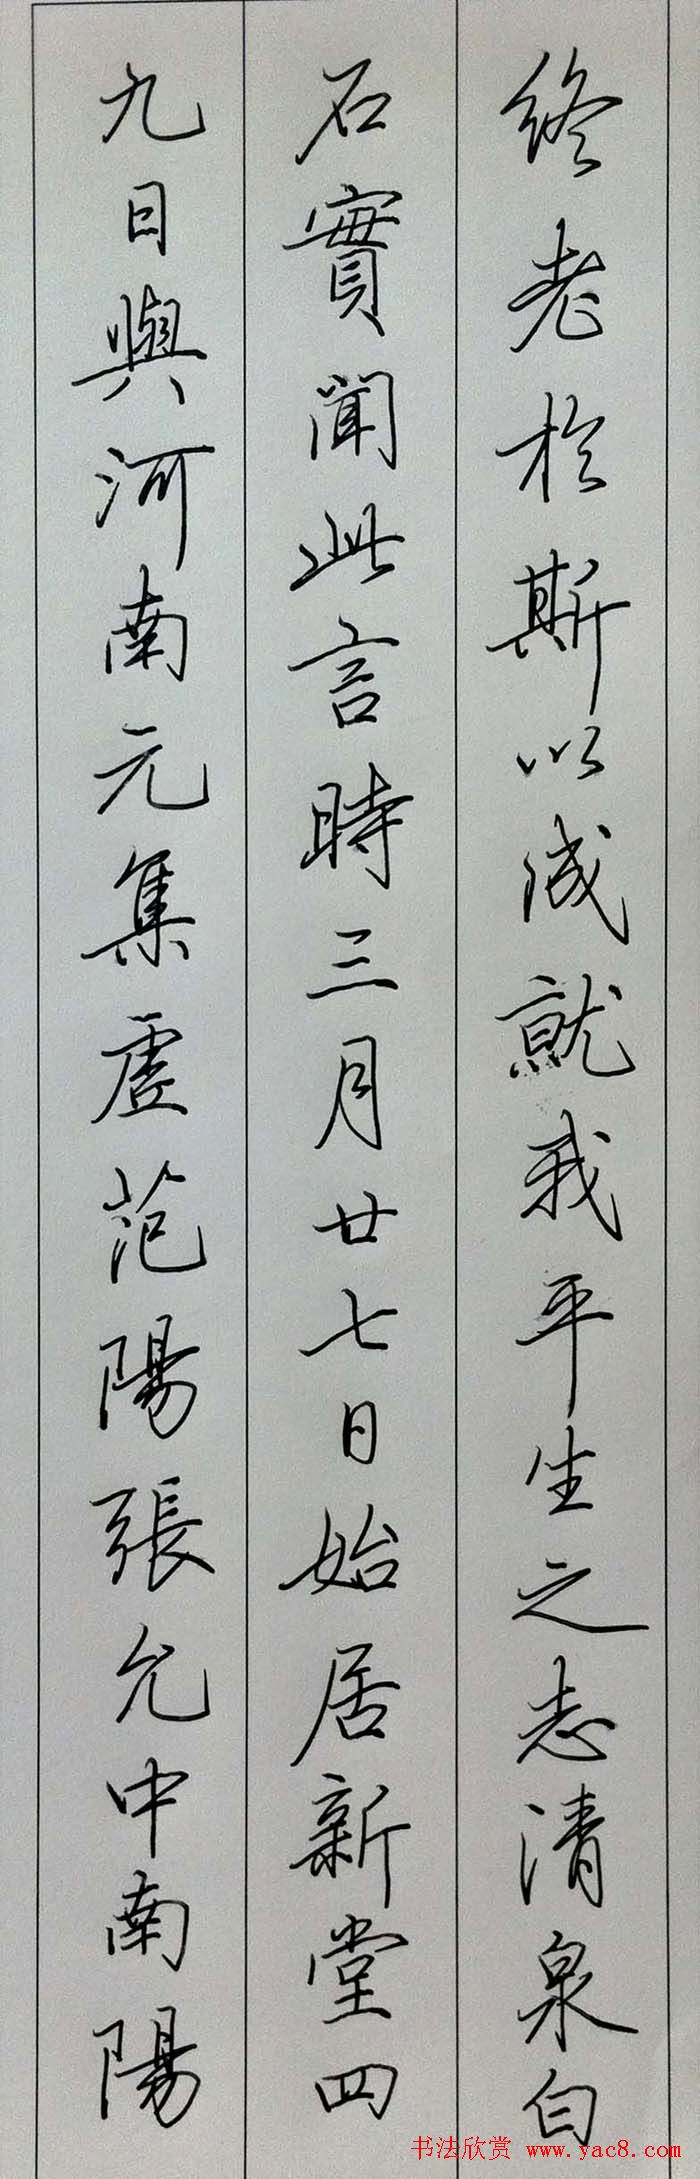 終老於斯以成就我平生之志清泉白
石實聞此言時三月廿七日始居新堂四
九日與河南元集虛范陽張允中南陽
书法欣赏 www.yac8.com